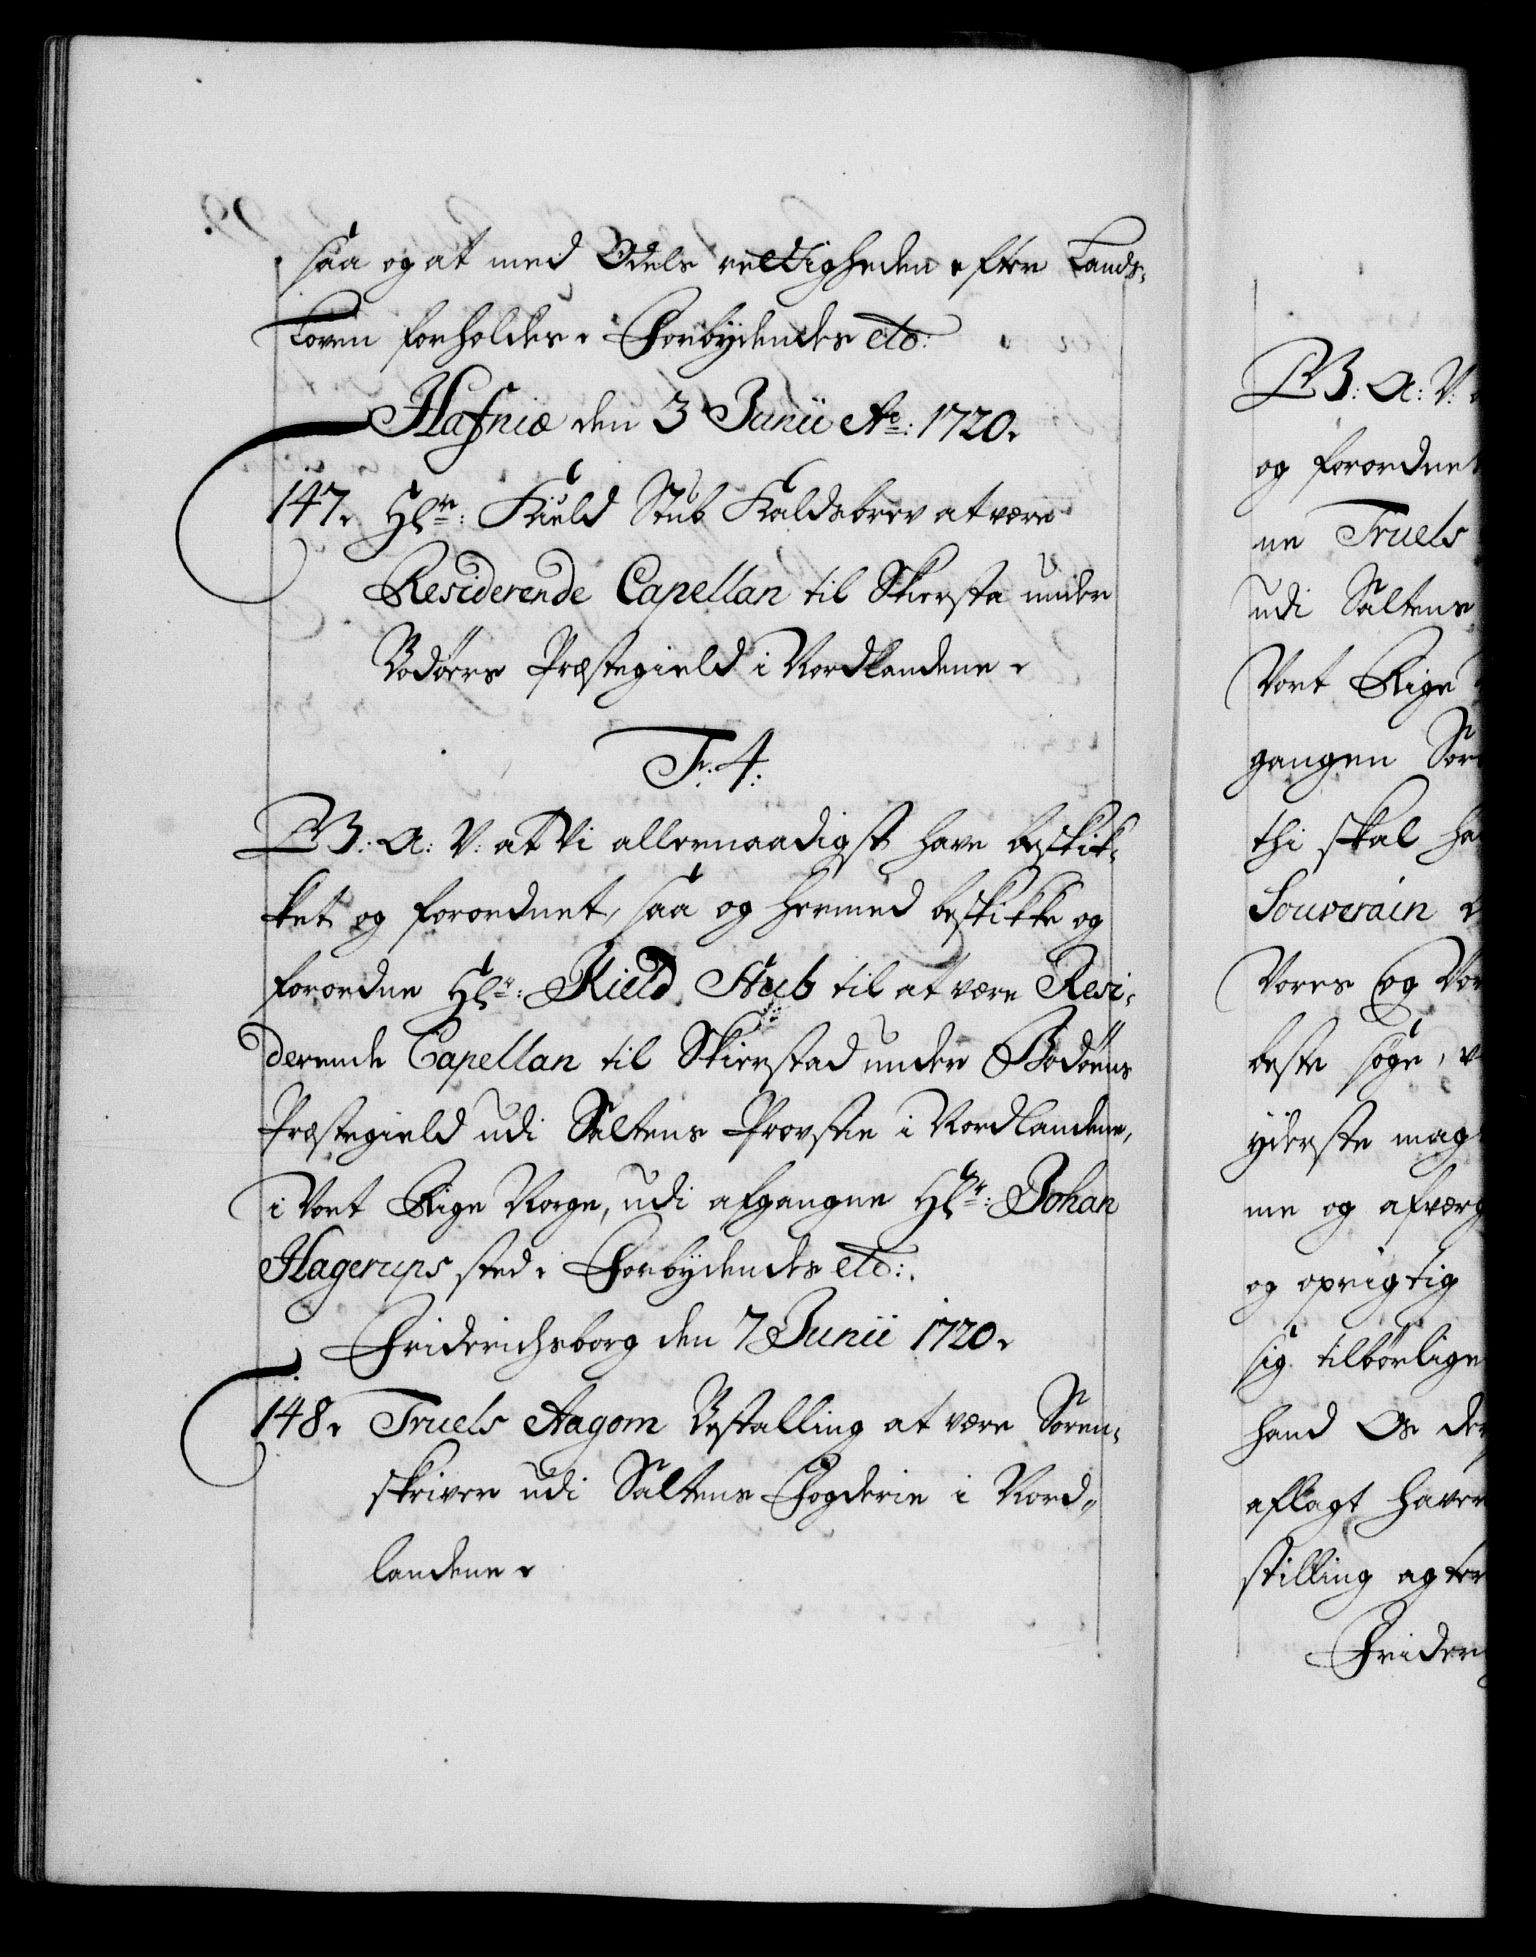 saa og at med Odels rettigheden efter Lands-
Loven forholdes. Forbydendes etc:
Hafniæ den 3 Junii Ao: 1720.
147. Hr: Kield Stub Kaldsbrev at være
Residerende Capellan til Skiersta under
Bodøens Præstegield i Nordlandene.
Fr. 4.
G. A: V: at Vi allernaadigst have beskik-
ket og forordnet, saa og hermed beskikke og
forordne Hr: Kield Stub til at være Resi-
derende Capellan til Skierstad under Bodøens
Præstegield udi Saltens Provstie i Nordlandene,
i Vort Rige Norge, udi afgangne Hr: Johan
Hagerups sted. Forbydendes etc:
Friderichsborg den 7 Junii 1720.
148. Truels Aagom Bestalling at være Soren-
skriver udi Saltens Fogderie i Nord-
landene.
G: A: V:
og forordnet
ne Truels
udi Saltens
Vort Rige
gangen Sor
thi skal ha
Souverain
Vores og Vor
beste søge,
yderste mag
me og afværg
og oprigtig
sig tilbørlige
hand Os der
aflagt haver
stilling agter
Frider